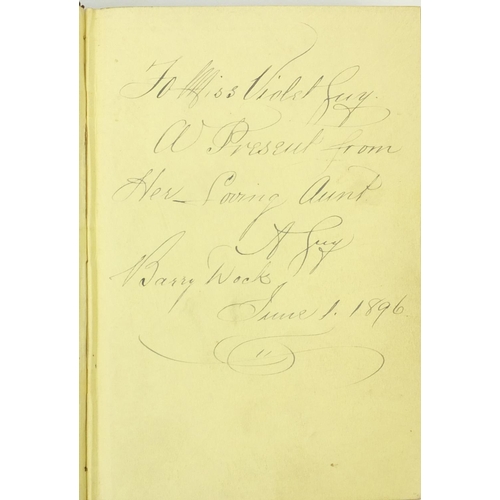 To Miss Violet Guy.
A Present from
Her Loving Aunt
A Guy
Barry Dock
June 1. 1896.